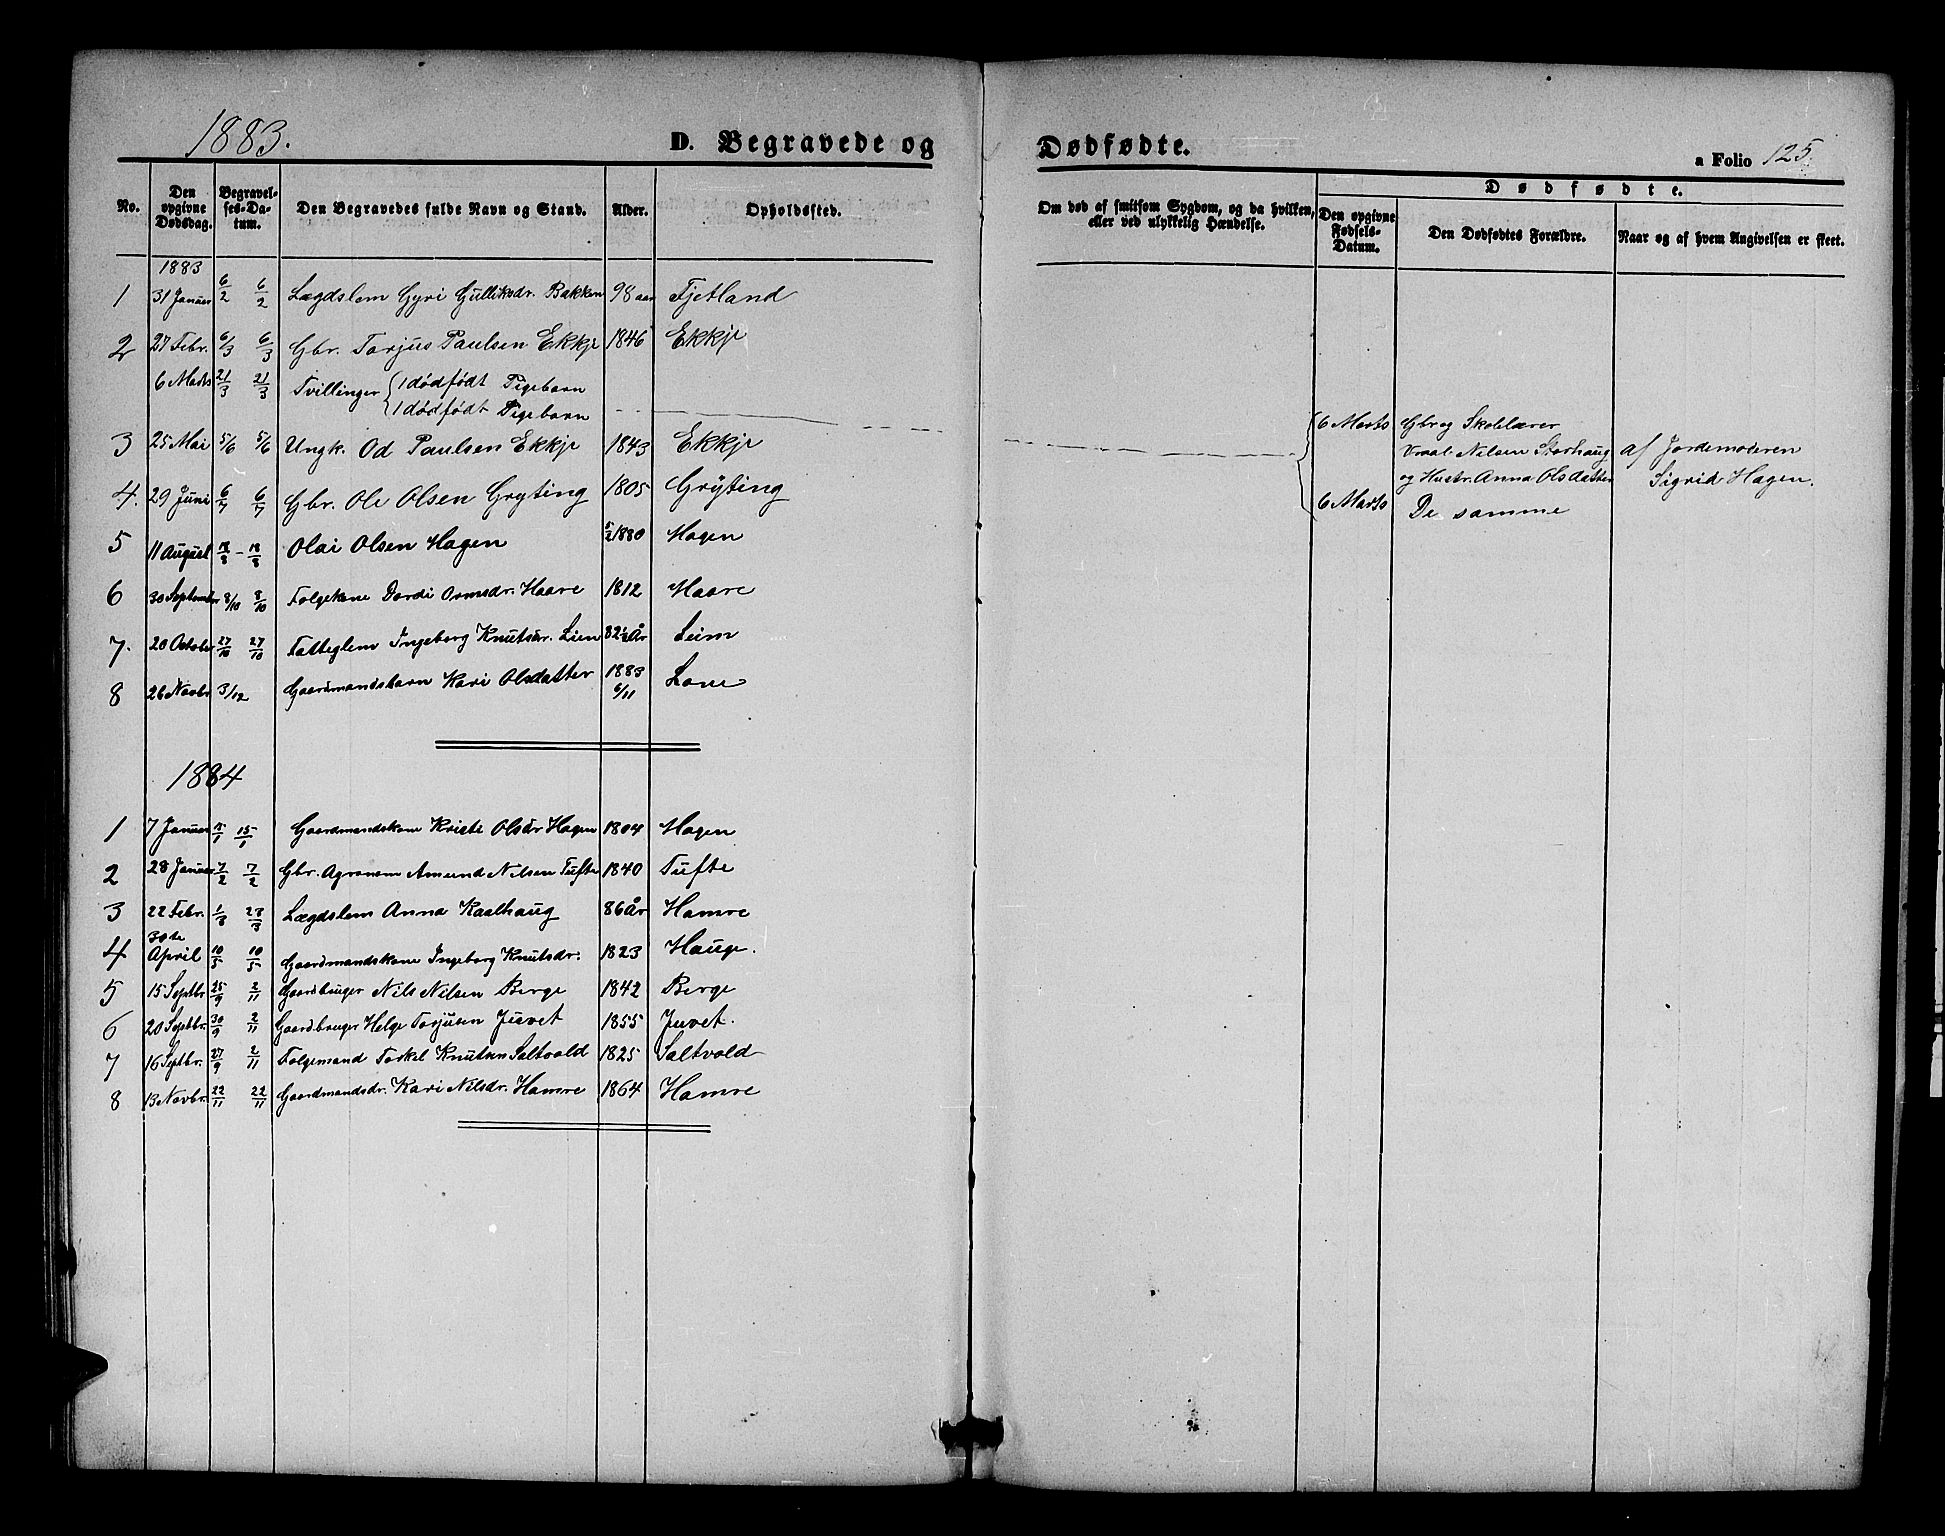 1883.
D. Begravede og Dødfødte.
a Folio 125.
No.
Den opgivne Dødsdag.
Begravelses-Datum.
Den Begravedes fulde Navn og Stand.
Alder.
Opholdssted.
Om død af smitsom Sygdom, og da hvilken, eller ved ulykkelig Hændelse.
Dødfødte.
Den opgivne Fødsels-Datum.
Den Dødfødtes Forældre.
Naar og af hvem Angivelsen er skeet.
1883
1 31 Januar 6/2 6/2 Lægdslem Gyri Gulliksdr. Bakken 98 aar Fjetland
2 27 Febr. 6/3 6/3 Gbr. Torjus Paulsen Ekkje 1846 Ekkje
6 Marts 21/3 21/3 Tvillinger { 1 dødfødt Pigebarn
1 dødfødt Pigebarn
6 Marts Gbr og Skolelærer
Vraal Nilsen Storhaug af Jordemoderen
og Hustr. Anna Olsdatter Sigrid Hagen.
6 Marts De samme
3 25 Mai 5/6 5/6 Ungk. Od Paulsen Ekkje 1843 Ekkje
4. 29 Juni 6/7 6/7 Gbr. Ole Olsen Gryting 1805 Gryting
5 11 August 18/8 - 18/8 Olai Olsen Hagen 5/2 1880 Hagen
6 30 September 8/10 8/10 Folgekone Dordi Ormsdr. Haare 1812 Haare
7. 20 October 27/10 27/10 Fatteglem Ingeborg Knutsdr. Lien 82½ År Leim
8 26 Novbr 3/12 Gaardmandsbarn Kari Olsdatter 1883 6/11 Lone
1884
1 7 Januar 15/1 15/1 Gaardmandskone Kristi Olsdr Hagen 1804 Hagen
2 28 Januar 7/2 7/2 Gbr. Agronom Amund Nilsen Tufte 1840 Tufte
3 22 Febr. 1/3 23/3 Lægdslem Anna Kaalhaug 86 År Hamre
4 30te April 10/5 10/5 Gaardmandskone Ingeborg Knutsdr. 1823 Hauge.
5 15 Septbr 25/9 2/11 Gaardbruger Nils Nilsen Berge 1842 Berge
6 20 Septbr. 30/9 2/11 Gaardbruger Helge Torjusen Juvet 1855 Juvet.
7 16 Septbr. 27/9 2/11 Folgemand Torkel Knutsen Saltvold 1825 Saltvold
8 13 Novbr. 22/11 22/11 Gaardmandsdr. Kari Nilsdr. Hamre 1864 Hamre